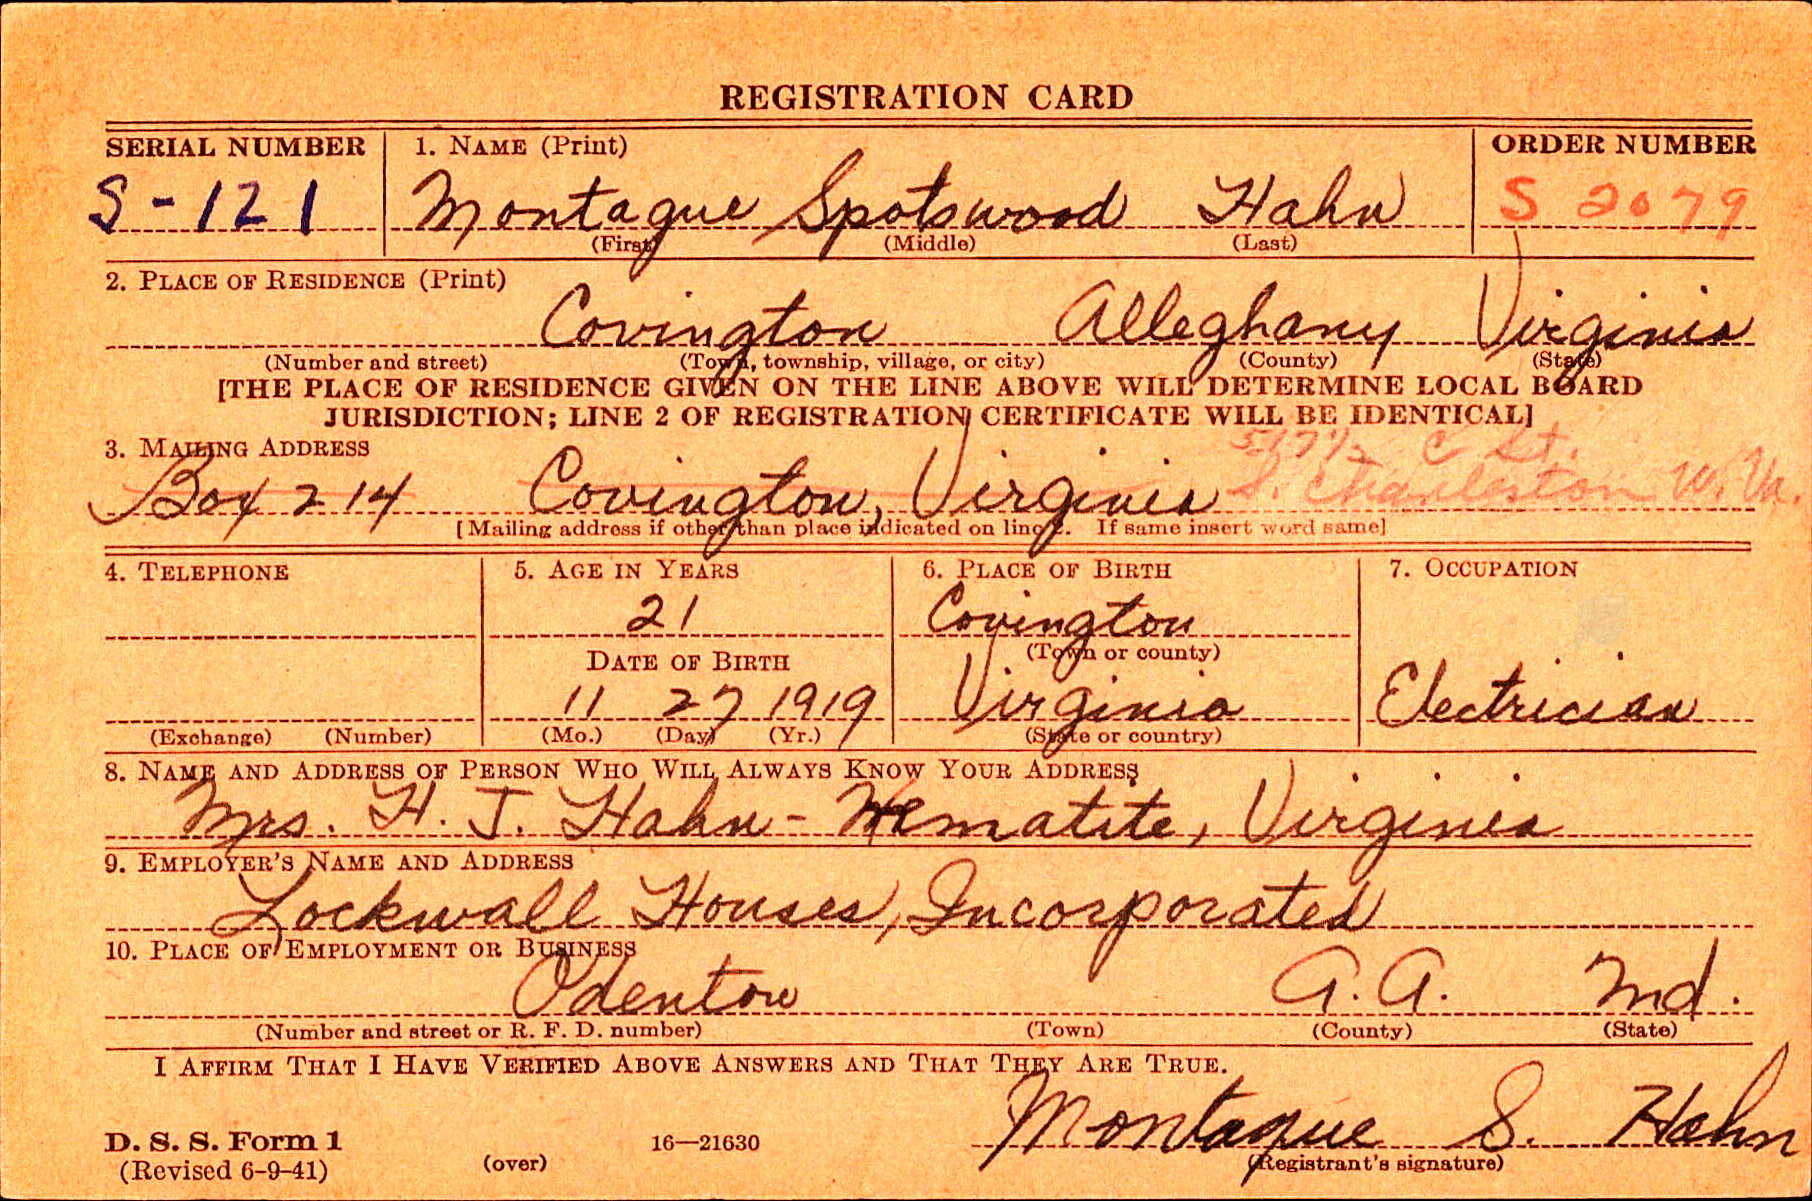 REGISTRATION CARD
SERIAL NUMBER 1. NAME (Print) ORDER NUMBER
S-121 Montague Spotswood Hahn S 2079
(First) (Middle) (Last)
2. PLACE OF RESIDENCE (Print)
Covington Alleghany Virginia
(Number and street) (Town, township, village, or city) (County) (State)
[THE PLACE OF RESIDENCE GIVEN ON THE LINE ABOVE WILL DETERMINE LOCAL BOARD
JURISDICTION; LINE 2 OF REGISTRATION CERTIFICATE WILL BE IDENTICAL]
3. MAILING ADDRESS 517½ C St.
Box 214 Covington, Virginia S. Charleston W. Va.
[Mailing address if other than place indicated on line 2. If same insert word same]
4. TELEPHONE 5. AGE IN YEARS 6. PLACE OF BIRTH 7. OCCUPATION
21 Covington
DATE OF BIRTH (Town or county)
11 27 1919 Virginia Electrician
(Exchange) (Number) (Mo.) (Day) (Yr.) (State or country)
8. NAME AND ADDRESS OF PERSON WHO WILL ALWAYS KNOW YOUR ADDRESS
Mrs. H. J. Hahn - Hematite, Virginia
9. EMPLOYER'S NAME AND ADDRESS
Lockwall Houses, Incorporated
10. PLACE OF EMPLOYMENT OR BUSINESS
Odenton A. A. Md.
(Number and street or R. F. D. number) (Town) (County) (State)
I AFFIRM THAT I HAVE VERIFIED ABOVE ANSWERS AND THAT THEY ARE TRUE.
Montague S. Hahn
D. S. S. Form 1
(Revised 6-9-41) (over) 16—21630 (Registrant's signature)